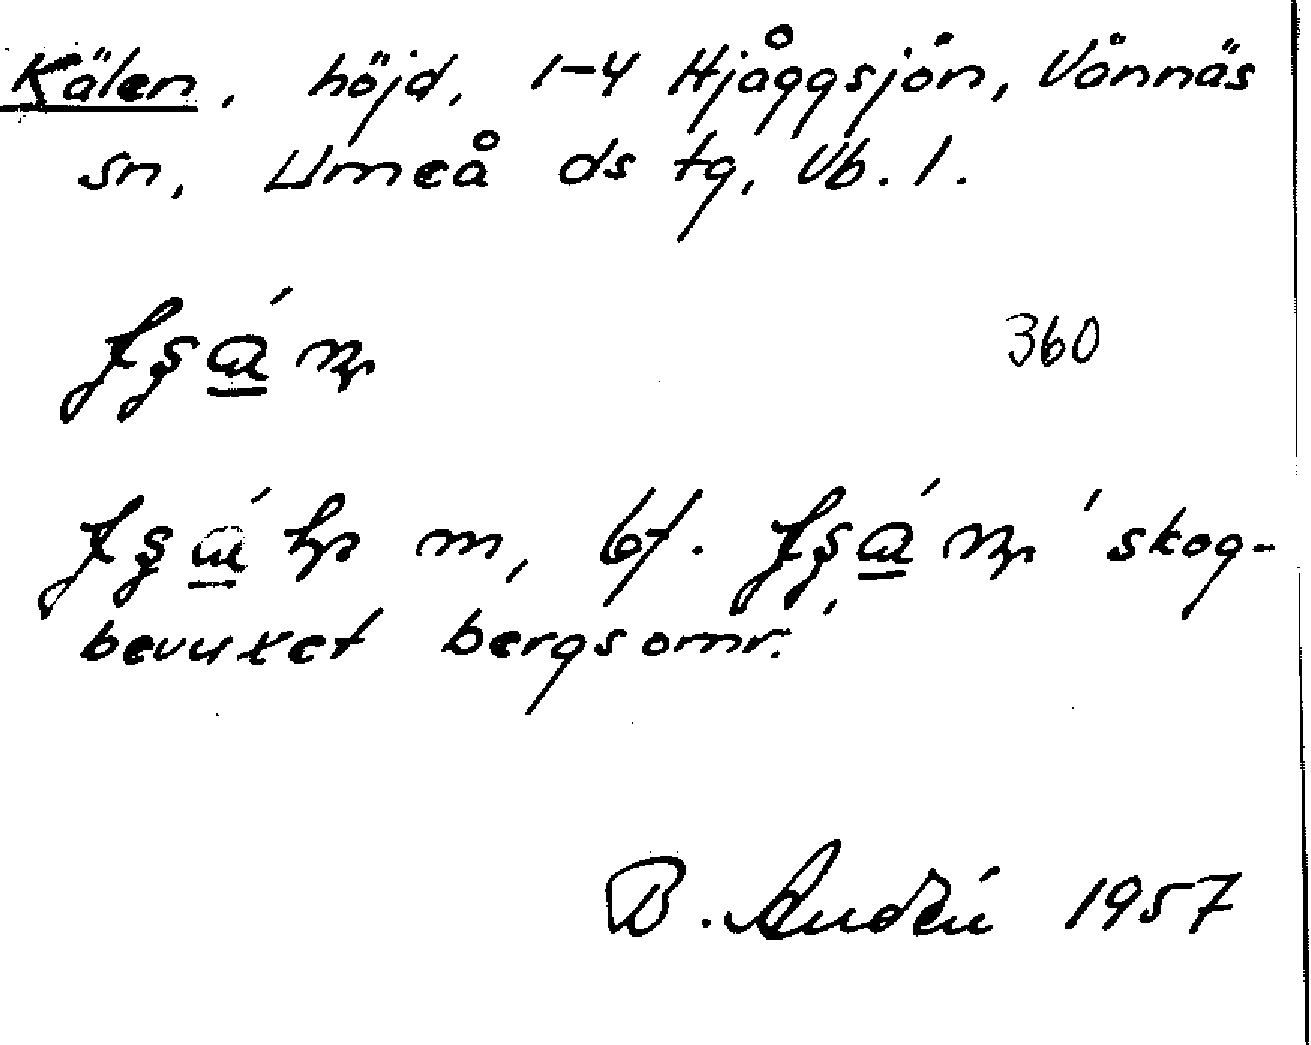 Kälen, höjd, 1-4 Hjåggsjön, Vännäs
sn, Umeå ds tg, Vb. l.
360
m, bf. ' skog-
bevuxet bergsomr.'
B. 1957